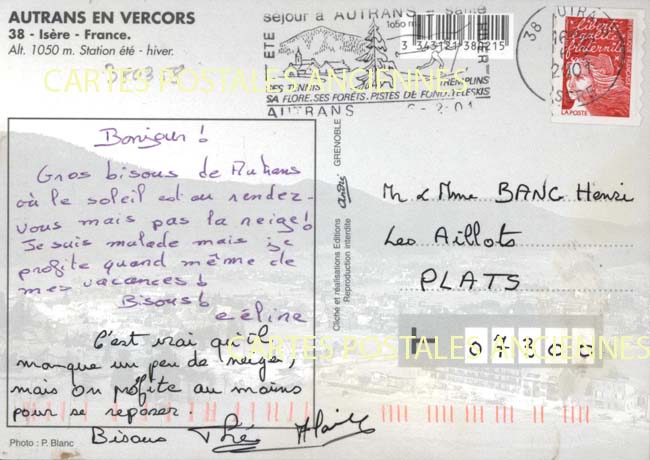 AUTRANS EN VERCORS
38 - Isère - France.
Alt. 1050 m. Station été - hiver.
séjour à AUTRANS = santé
ETE
1050 m
HIVER
SES TENNIS
TREMPLINS
SA FLORE. SES FORÊTS. PISTES DE FOND. TELESKIS
AUTRANS
2-01
3 343121 380215
38 AUTRANS
ISERE
liberté
égalité
fraternité
LA POSTE
CARTES POSTALES ANCIENNES
Bonjour !
Gros bisous de Autrans
où le soleil est au rendez-
vous mais pas la neige !
Je suis malade mais je
profite quand même de
mes vacances !
Bisous !
Céline
C'est vrai qu'il
manque un peu de neige,
mais on profite au moins
pour se reposer.
Bisous
Alain
Photo : P. Blanc
André GRENOBLE
Cliché et réalisations Editions
Reproduction interdite
Mr & Mme BANC Henri
Les Aillots
PLATS
07300
CARTES POSTALES ANCIENNES